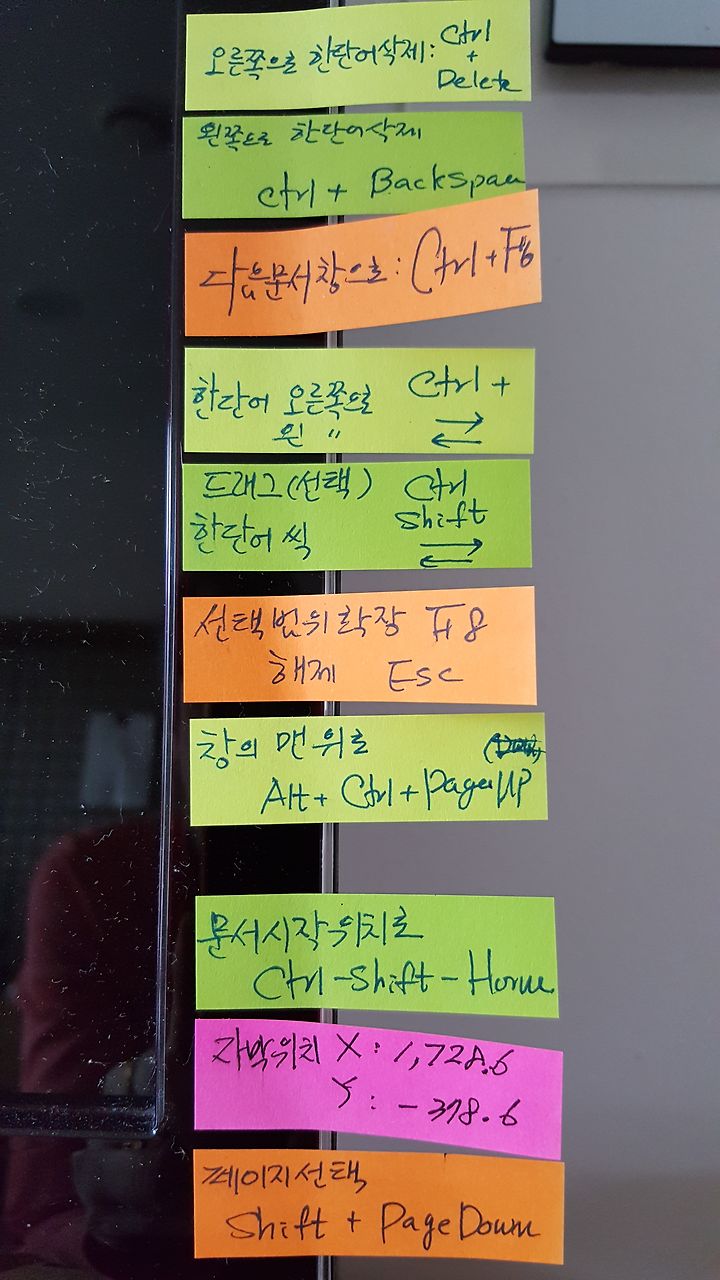 오른쪽으로 한단어삭제: Ctrl
+
Delete
왼쪽으로 한단어삭제
Ctrl + Backspace
다음문서창으로: Ctrl + F6
한단어 오른쪽으로 Ctrl +
왼 〃 ⇄
드래그(선택) Ctrl
한단어씩 Shift
⇄
선택범위확장 F8
해제 Esc
창의 맨위로
Alt + Ctrl + PageUP
문서시작위치로
Ctrl-Shift-Home
자막위치 X: 1,728.6
Y: -378.6
페이지선택
Shift + PageDown